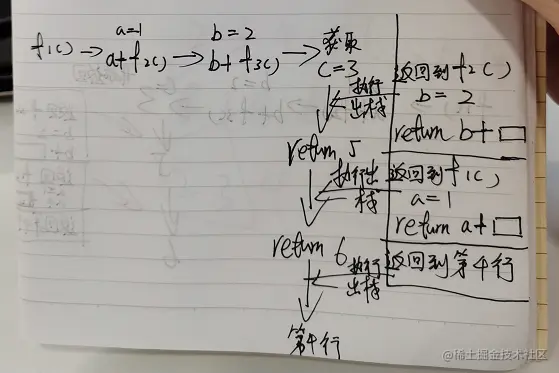 a=1 b=2
f1() → a+f2() → b+f3() → 获取
c=3
执行
出栈
return 5
执行出
栈
return 6
执行
出栈
第4行
返回到f2()
b=2
return b+□
返回到f1()
a=1
return a+□
返回到第4行
@稀土掘金技术社区